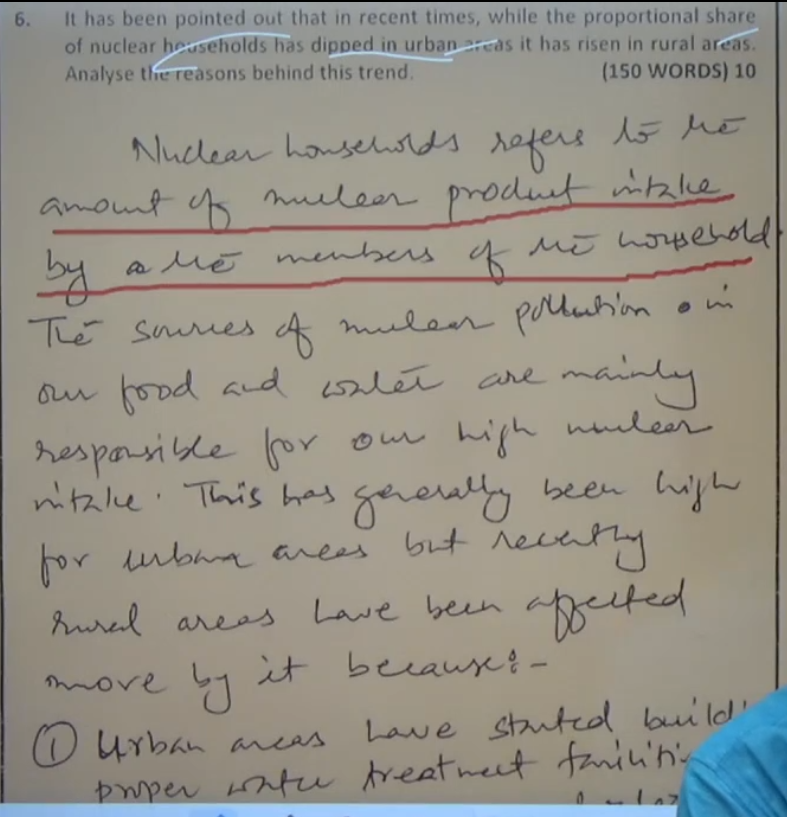 6. It has been pointed out that in recent times, while the proportional share
of nuclear households has dipped in urban areas it has risen in rural areas.
Analyse the reasons behind this trend. (150 WORDS) 10
Nuclear households refers to the
amount of nuclear product intake
by a the members of the household
The sources of nuclear pollution in
our food and water are mainly
responsible for our high nuclear
intake. This has generally been high
for urban areas but recently
rural areas have been affected
more by it because:-
① Urban areas have started
proper water treatment